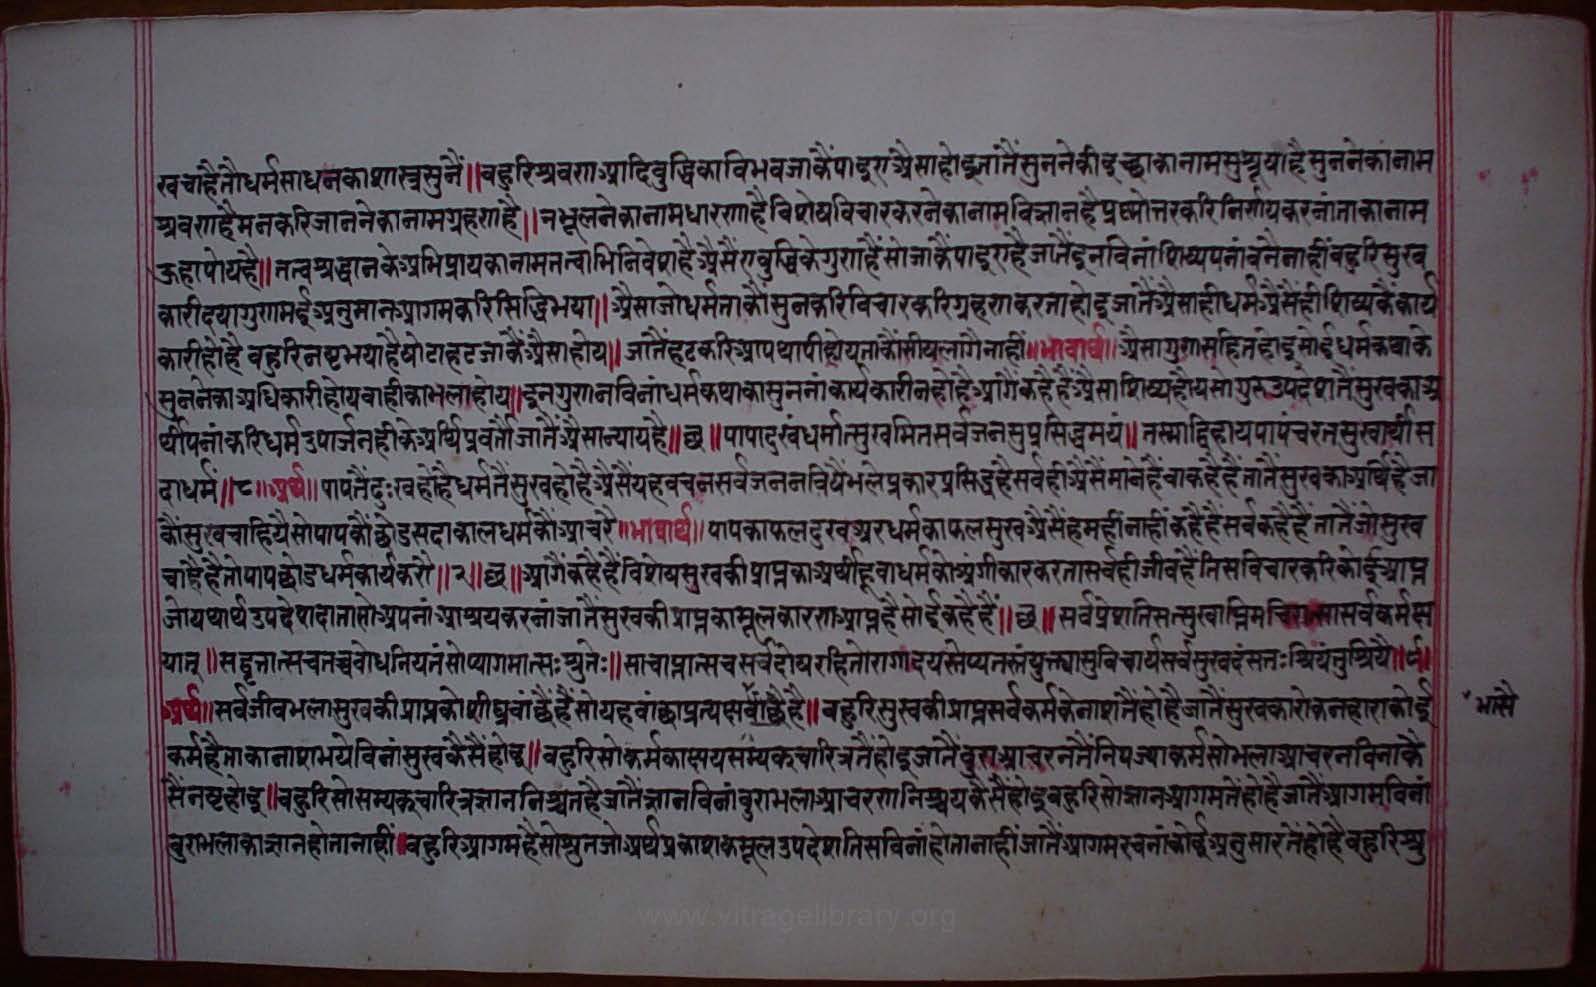 खचाहैतौधर्मसाधनकाशास्त्रसुनैं॥बहुरिश्रवणआदिबुद्धिकाविभवजाकैंपाइएअैसाहोइजातैंसुननेकीइच्छाकानामसुश्रूषाहैसुननेकानाम
श्रवणहैमनकरिजाननेकानामग्रहणहै॥नभूलनेकानामधारणाहैविशेषविचारकरनेकानामविज्ञानहैप्रष्णोत्तरकरिनिर्णयकरनांताकानाम
ऊहापोयहै॥तत्वश्रद्धानकेअभिप्रायकानामतत्वाभिनिवेशहैअैसैंएबुद्धिकेगुणहैंसोजाकैंपाइएहैजातैंइनविनांशिष्यपनांबनैनाहींबहुरिसुख
कारीदयागुणमईअनुमानआगमकरिसिद्धिभया॥अैसाजोधर्मताकौंसुनकरिविचारकरिग्रहणकरताहोइजातैंअैसाहीधर्मअैसैंहीशिष्यकैंकार्य
कारीहोहै बहुरिनष्टभयाहैषोटाहटजाकैंअैसाहोय॥जातैंहटकरिआपथापीहोयताकौंसीषलागैनाहीं॥भावार्थ॥अैसागुणसहितहोइसोईधर्मकथाके
सुननेकाअधिकारीहोयवाहीकाभलाहोय॥इनगुणनविनांधर्मकथाकासुननांकार्यकारीनहोहैआगैंकहैहैंअैसाशिष्यहौयसोगुरुउपदेशतैंसुखकाअ
र्थीपनांकरिधर्मउपार्जनहीकेअर्थिप्रवर्तौजातैंअैसान्यायहै॥छ॥पापाद्दुखंधर्मात्सुखमितसर्वजनसुप्रसिद्धमयं॥तस्माद्विहायपापंचरतसुखार्थीस
दाधर्मं॥८॥अर्थ॥पापतैंदुःखहोहैधर्मतैंसुखहोहैअैसैंयहवचनसर्वजननविषैंभलेप्रकारप्रसिद्धहैसर्वहीअैसैंमानेहैंवाकहैहैंतातैंसुखकाअर्थिहैजा
कौंसुखचाहियैसोपापकौंछोडसदाकालधर्मकौंआचरै॥भावार्थ॥पापकाफलदुखअरधर्मकाफलसुखअैसैंहमहींनाहींकहैहैंसर्वकहैहैंतातैंजोसुख
चाहैहैतोपापछोडधर्मकार्यकरौ॥२॥छ॥आगैंकहैहैंविशेषसुखकीप्राप्तकाअर्थीहूवाधर्मकोअंगीकारकरतासर्वहीजीवहैंतिसविचारकरिकोईआप्त
जोयथार्थउपदेशदातासोअपनांआश्रयकरनांजातैंसुखकीप्राप्तकामूलकारणआप्तहैसोईकहैहैं॥छ॥सर्वप्रेशतिसत्सुखाप्तिमचिरात्सासर्वकर्मक्ष
यात्॥सद्वृत्तात्सचतच्चबोधनियतंसोप्यागमात्सःश्रुतेः॥साचाप्तात्सचसर्वदोषरहितोरागादयस्तेप्यतस्तंयुक्त्यासुविचार्यसर्वसुखदंसतःश्रियंतुश्रियै॥९॥
अर्थ॥सर्वजीवभलासुखकीप्राप्तकोशीघ्रवांछैंहैंसोयहवांछाप्रत्यक्षवांछैहै॥बहुरिसुखकीप्राप्तसर्वकर्मकेनाशतैंहोहैजातैंसुखकारोकनहाराकोई भासै
कर्महैताकानाशभयेविनांसुखकैसैंहोइ॥बहुरिसोकर्मकाक्षयसम्यकचारित्रतैंहोइजातैंबुराआचरनतैंनिपज्याकर्मसोभलाआचरनविनाकै
सैंनष्टहोइ॥बहुरिसोसम्यक्चारित्रज्ञाननिश्चतहैजातैंज्ञानविनांबुराभलाआचरणनिश्चयकैसैंहोइबहुरिसोज्ञानआगमतेंहोहैजातैंआगमविनां
बुराभलाकाज्ञानहोतानाहीं॥बहुरिआगमहैसोश्रुतजोअर्थप्रकाशकमूलउपदेशतिसविनांहोतानाहींजातैंआगमरचनांकोईअनुसारतेंहोहैबहुरिश्रु
www.vitragelibrary.org